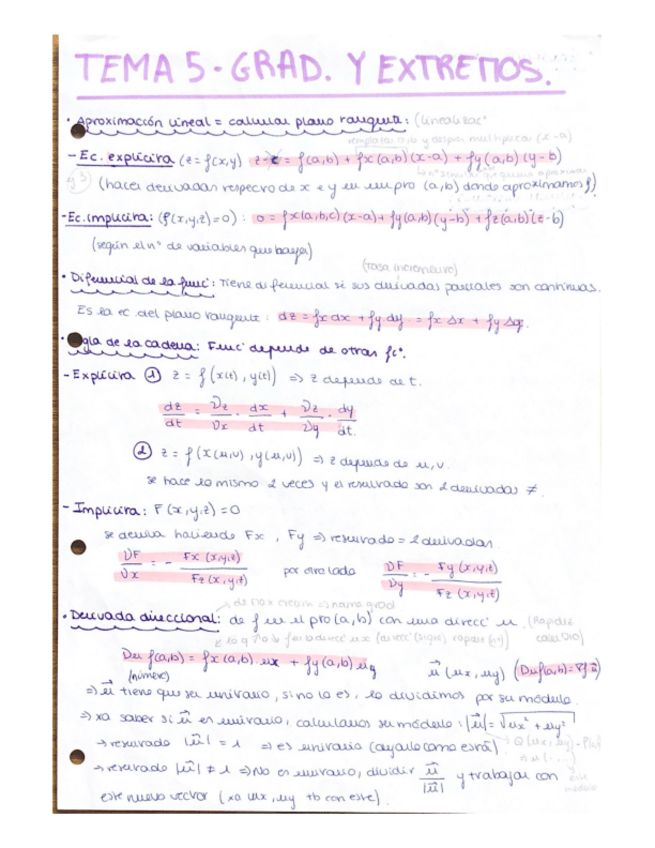 TEMA 5 - GRAD. Y EXTREMOS.
· Aproximacción lineal = calcular plano tangente: (linealizac°
- Ec. explícita (z = f(x,y) z-c = f(a,b) + fx(a,b)(x-a) + fy(a,b)(y-b)
(hacer derivadas respecto de x e y en un pto (a,b) donde aproximamos f)
- Ec. implícita: (f(x,y,z)=0): 0 = fx(a,b,c)(x-a) + fy(a,b)(y-b) + fz(a,b)(z-b)
(según el n° de variables que haya)
(tasa incremento)
· Diferencial de la func°: Tiene diferencial si sus derivadas parciales son continuas.
Es la ec. del plano tangente: dz = fx dx + fy dy = fx Δx + fy Δy.
gla de la cadena: Func° depende de otras fc°.
- Explícita ① z = f(x(t), y(t)) ⇒ z depende de t.
dz/dt = ∂z/∂x · dx/dt + ∂z/∂y · dy/dt.
② z = f(x(u,v), y(u,v)) ⇒ z depende de u,v.
se hace lo mismo 2 veces y el resultado son 2 derivadas ≠.
- Implícita: F(x,y,z) = 0
se deriva haciendo Fx, Fy ⇒ resultado = 2 derivadas.
∂F/∂x = - Fx(x,y,z)/Fz(x,y,z) por otro lado ∂F/∂y = - Fy(x,y,z)/Fz(x,y,z)
· Derivada direccional: de f en el pto (a,b) con una direcc° u. (Rapidez cambio)
Du f(a,b) = fx(a,b) · ux + fy(a,b) uy u⃗ (ux, uy) (Duf(a,b) = ∇f · u⃗)
(número)
⇒ u⃗ tiene que ser unitario, si no lo es, lo dividimos por su módulo.
⇒ xa saber si u⃗ es unitario, calculamos su módulo: |u⃗| = √ux² + uy²
→ resultado |u⃗| = 1 ⇒ es unitario (dejarlo como está)
→ resultado |u⃗| ≠ 1 ⇒ No es unitario, dividir u⃗/|u⃗| y trabajar con
este nuevo vector (xa ux, uy tb con este).